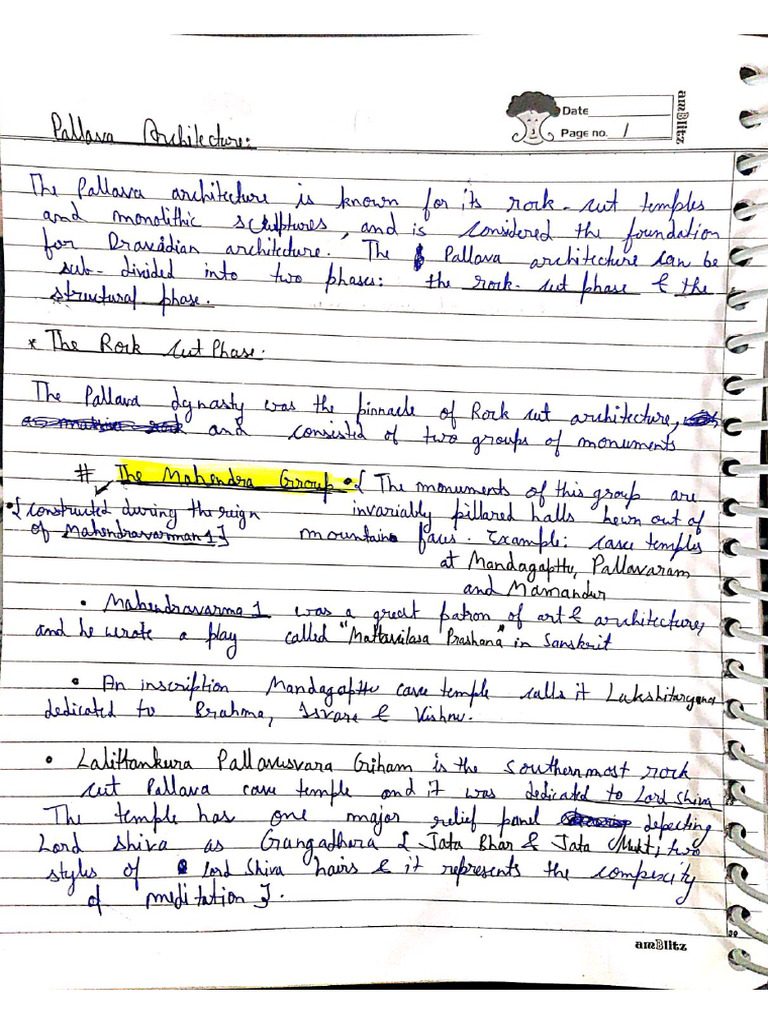 amBlitz
Date
Page no. 1
Pallava Architecture:
The Pallava architecture is known for its rock-cut temples
and monolithic sculptures, and is considered the foundation
for Dravidian architecture. The Pallava architecture can be
sub-divided into two phases: the rock-cut phase & the
structural phase.
* The Rock cut Phase.
The Pallava dynasty was the pinnacle of Rock cut architecture,
and consisted of two groups of monuments
# The Mahendra Group • [ The monuments of this group are
• [constructed during the reign invariably pillared halls hewn out of
of Mahendravarman 1] mountain faces. Example: cave temples
at Mandagapttu, Pallavaram
and Mamandur
• Mahendravarma 1 was a great patron of art & architecture,
and he wrote a play called "Mattavilasa Prashana" in Sanskrit
• An inscription Mandagapttu cave temple calls it Lakshitaryana
dedicated to Brahma, Isvara & Vishnu.
• Lalittankura Pallavusvara Griham is the southernmost rock
cut Pallava cave temple and it was dedicated to Lord Shiva
The temple has one major relief panel depecting
Lord Shiva as Gangadhera [ Jata Bhar & Jata Mukt; two
styles of Lord Shiva hairs & it represents the compexity
of meditation ].
amBlitz